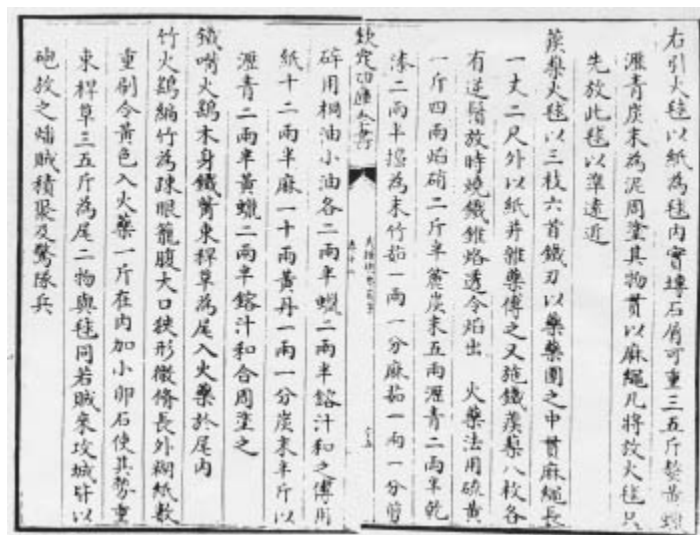 右引火毬以紙為毬内實塼石屑可重三五斤熬黄蠟
瀝青炭末為泥周塗其物貫以麻繩凡將放火毬只
先放此毬以準逺近
蒺藜火毬以三枝六首鐵刃以藥藥團之中貫麻繩長
一丈二尺外以紙并雜藥傅之又施鐵蒺藜八枚各
有逆鬚放時燒鐵錐烙透令焰出 火藥法用硫黄
一斤四兩焰硝二斤半麄炭末五兩瀝青二兩半乾
漆二兩半搗為末竹茹一兩一分麻茹一兩一分剪
欽定四庫全書
碎用桐油小油各二兩半蠟二兩半鎔汁和之傅用
紙十二兩半麻一十兩黄丹一兩一分炭末半斤以
瀝青二兩半黄蠟二兩半鎔汁和合周塗之
鐵嘴火鷂木身鐵觜束稈草為尾入火藥於尾内
竹火鷂編竹為疎眼籠腹大口狹形微脩長外糊紙數
重刷令黄色入火藥一斤在内加小卵石使其勢重
束稈草三五斤為尾二物與毬同若賊來攻城皆以
砲放之燔賊積聚及驚隊兵